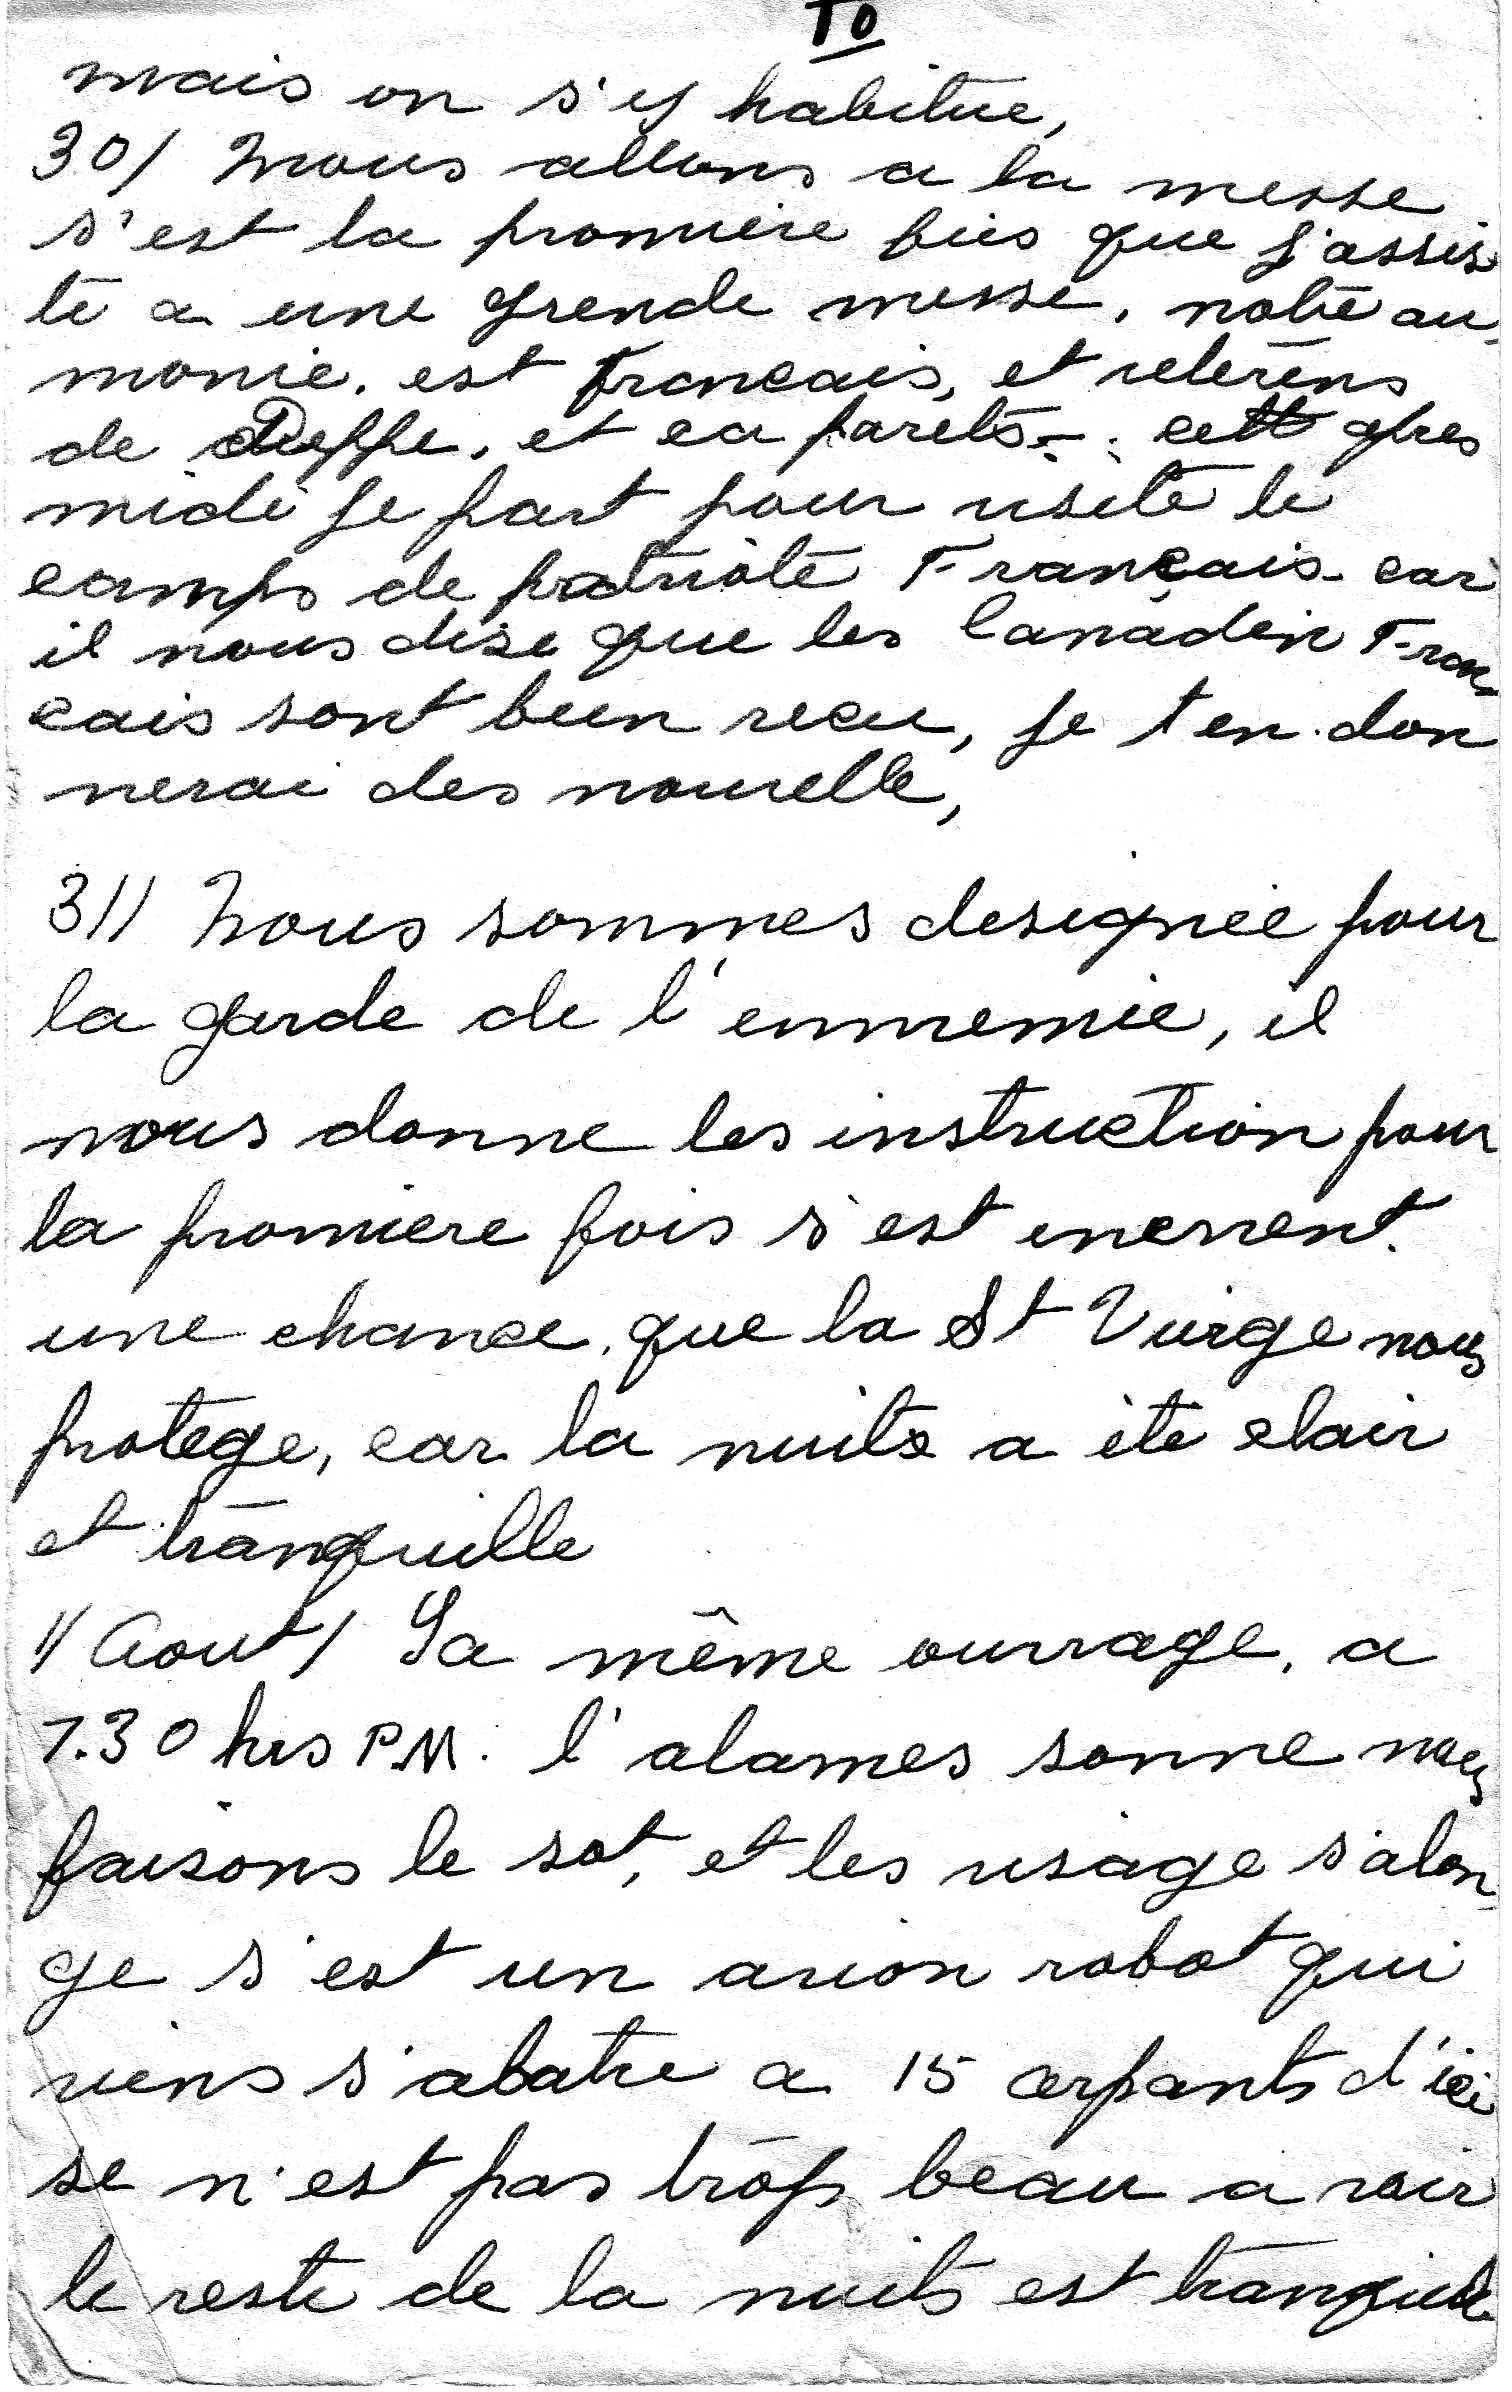 10
mais on s'y habitue,
30/ Nous allons a la messe
s'est la promiere fois que j'assis
te a une grende messe, notre au
monie. est Francais, et veterens
de Dieppe. et ca parets-. cett apres
midi je part pour visite le
camps de patriote Francais car
il nous dise que les Canadien Fran
cais sont bien recu, je t en don
nerai des nouvelle,
31/ Nous sommes designee pour
la garde de l'ennemie, il
nous donne les instruction pour
la promiere fois s'est enerrent.
une chance, que la St Vierge nous
protege, car la nuits a été clair
et tranquille
1/ Aout/ La même ouvrage, a
7.30 hrs P.M. l'alames sonne nous
faisons le sot, et les visage s'alon
ge s'est un avion robot qui
viens s'abatre a 15 arpants d'ici
se n'est pas trop beau a voir
le reste de la nuits est tranquile